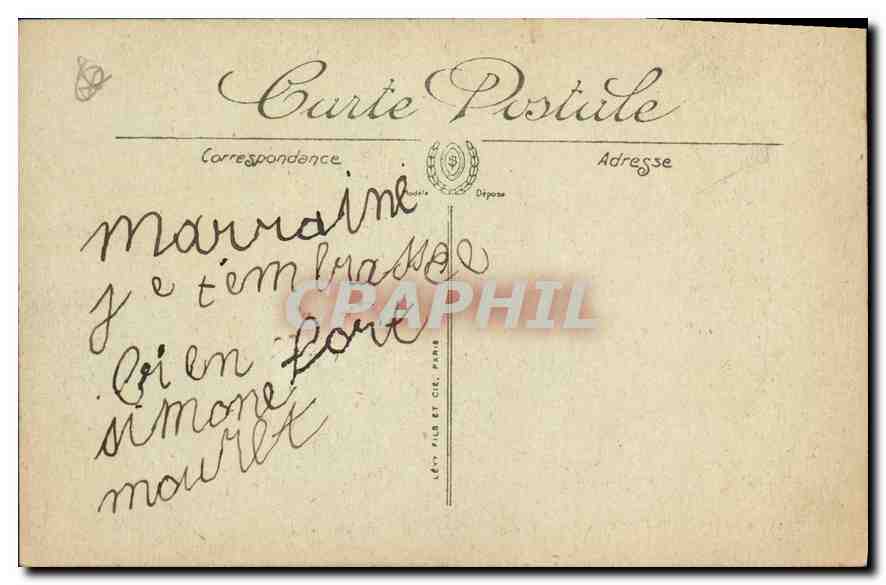 Carte Postale
Correspondance
Adresse
Modèle Déposé
$
marraine
je t'embrasse
bien fort
simone
mouret
LÉVY FILS ET CIE, PARIS
CPAPHIL